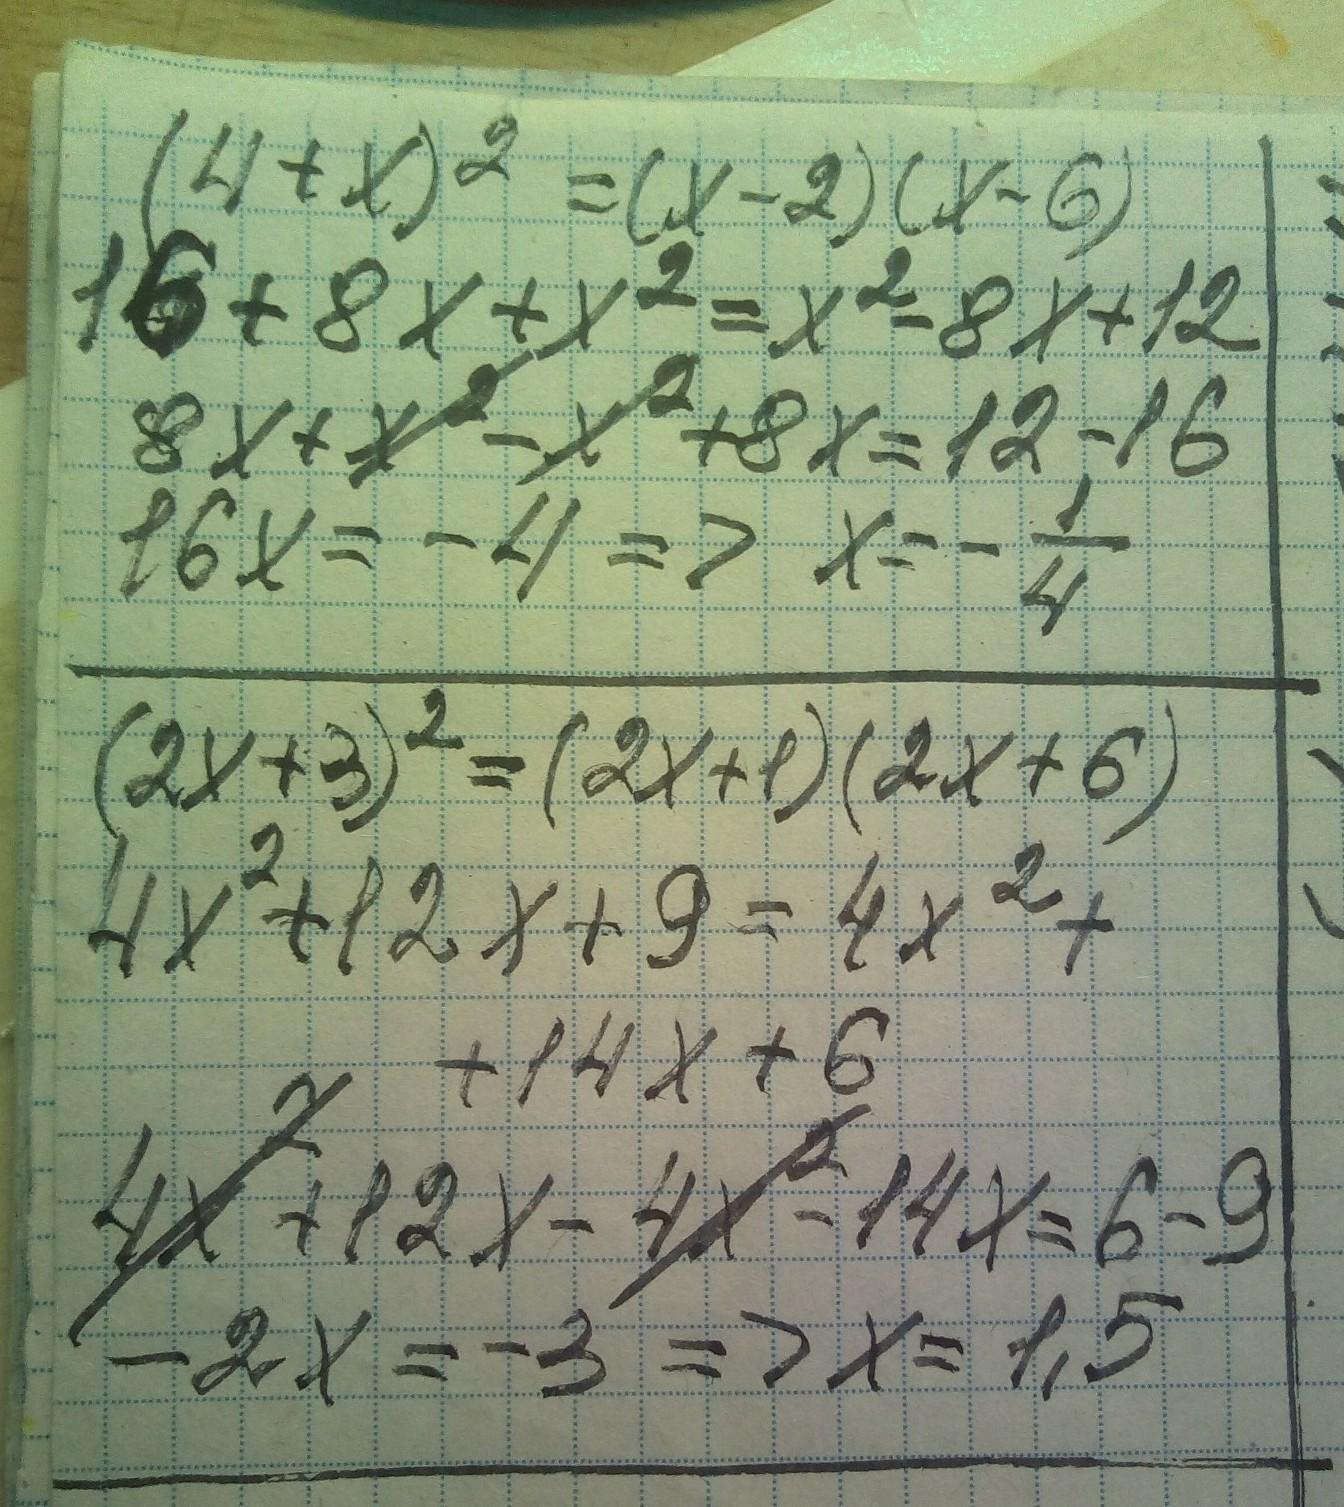 (4+x)² = (x-2)(x-6)
16+8x+x²=x²-8x+12
8x+x²-x²+8x=12-16
16x=-4 => x=-1/4
(2x+3)²=(2x+1)(2x+6)
4x²+12x+9=4x²+
+14x+6
4x²+12x-4x²-14x=6-9
-2x=-3 => x=1,5